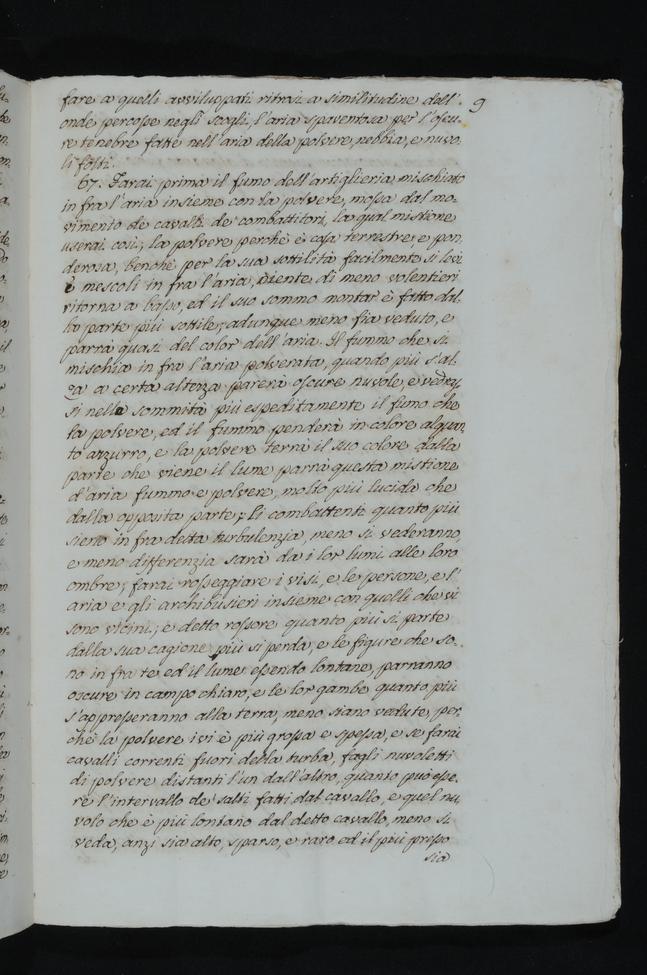 fare a quelli avviluppati ritrosi a similitudine dell' 9
onde percosse negli scogli, l'aria spaventosa per l'oscu-
re tenebre fatte nell'aria della polvere, nebbia, e nuvo-
li folti.
67. Farai prima il fumo dell'artiglieria mischiato
in fra l'aria insieme con la polvere, mossa dal mo-
vimento de cavalli de combattitori, la qual mistione
userai così; la polvere perchè è cosa terrestre, e pon-
derosa, benchè per la sua sottilità facilmente si levi
e mescoli in fra l'aria, niente di meno volentieri
ritorna a basso, ed il suo sommo montar è fatto dal-
la parte più sottile; adunque meno fia veduto, e
parrà quasi del color dell'aria. Il fummo che si
mischia in fra l'aria polverata, quando più s'al-
za a certa altezza parerà oscure nuvole, e vedras-
si nella sommità più espeditamente il fumo che
la polvere, ed il fummo penderà in colore alquan-
to azzurro, e la polvere terrà il suo colore dalla
parte che viene il lume parrà questa mistione
d'aria fummo e polvere, molto più lucida che
dalla opposita parte; li combattenti quanto più
sieno in fra detta turbulenzia, meno si vederanno,
e meno differenzia sarà da i lor lumi alle loro
ombre; farai rosseggiare i visi, e le persone, e l'
aria e gli archibusieri insieme con quelli che vi
sono vicini; e detto rossore quanto più si parte
dalla sua cagione più si perda, e le figure che so-
no in fra te ed il lume essendo lontane, parranno
oscure in campo chiaro, e le lor gambe quanto più
s'appresseranno alla terra, meno siano vedute, per-
chè la polvere ivi è più grossa e spessa, e se farai
cavalli correnti fuori della turba, fagli nuvoletti
di polvere distanti l'un dall'altro, quanto può esse-
re l'intervallo de' salti fatti dal cavallo, e quel nu-
volo che è più lontano dal detto cavallo, meno si
veda, anzi sia alto, sparso, e raro ed il più presso
sia